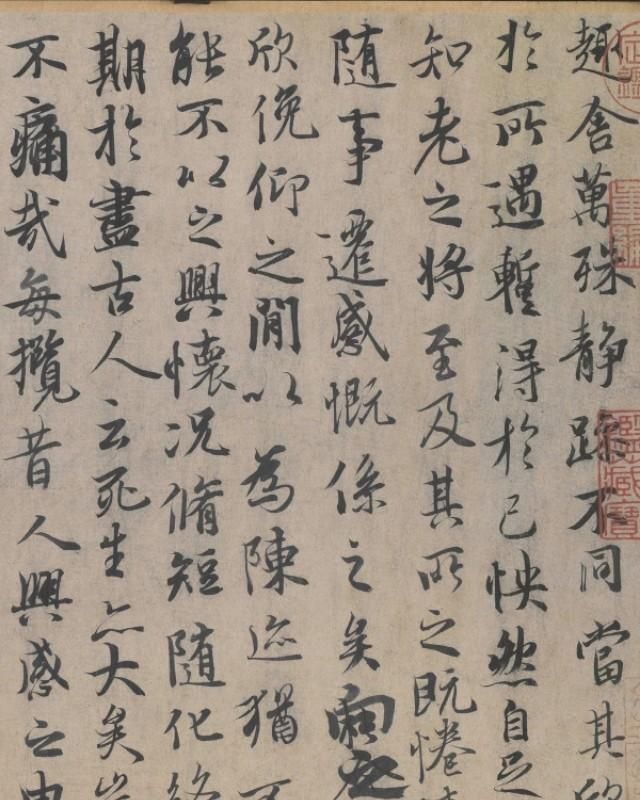 趣舍萬殊静躁不同當其欣
於所遇蹔得於己怏然自足
知老之將至及其所之既惓
随事遷感慨係之矣向之
欣俛仰之閒以為陳迹猶不
能不以之興懷况脩短随化終
期於盡古人云死生亦大矣豈
不痛哉每攬昔人興感之由